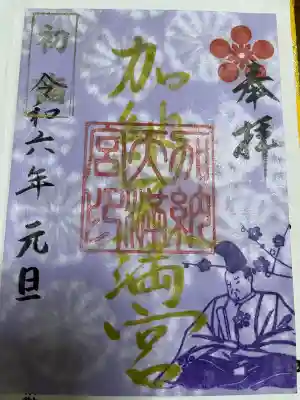 奉拝
加納天満宮
加納天満宮印
初詣
令和六年 元旦